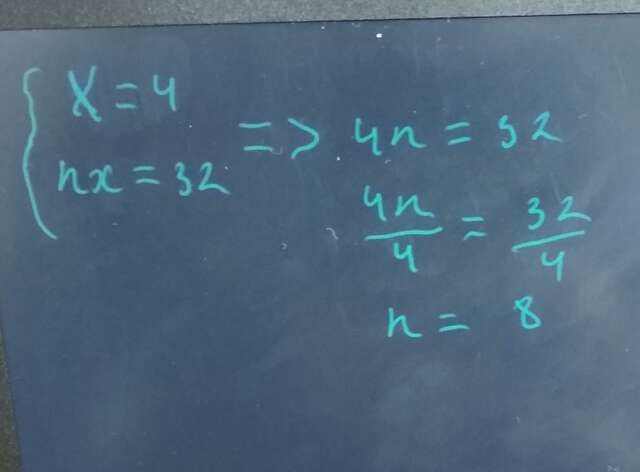 x = 4
nx = 32
=> 4n = 32
4n/4 = 32/4
n = 8